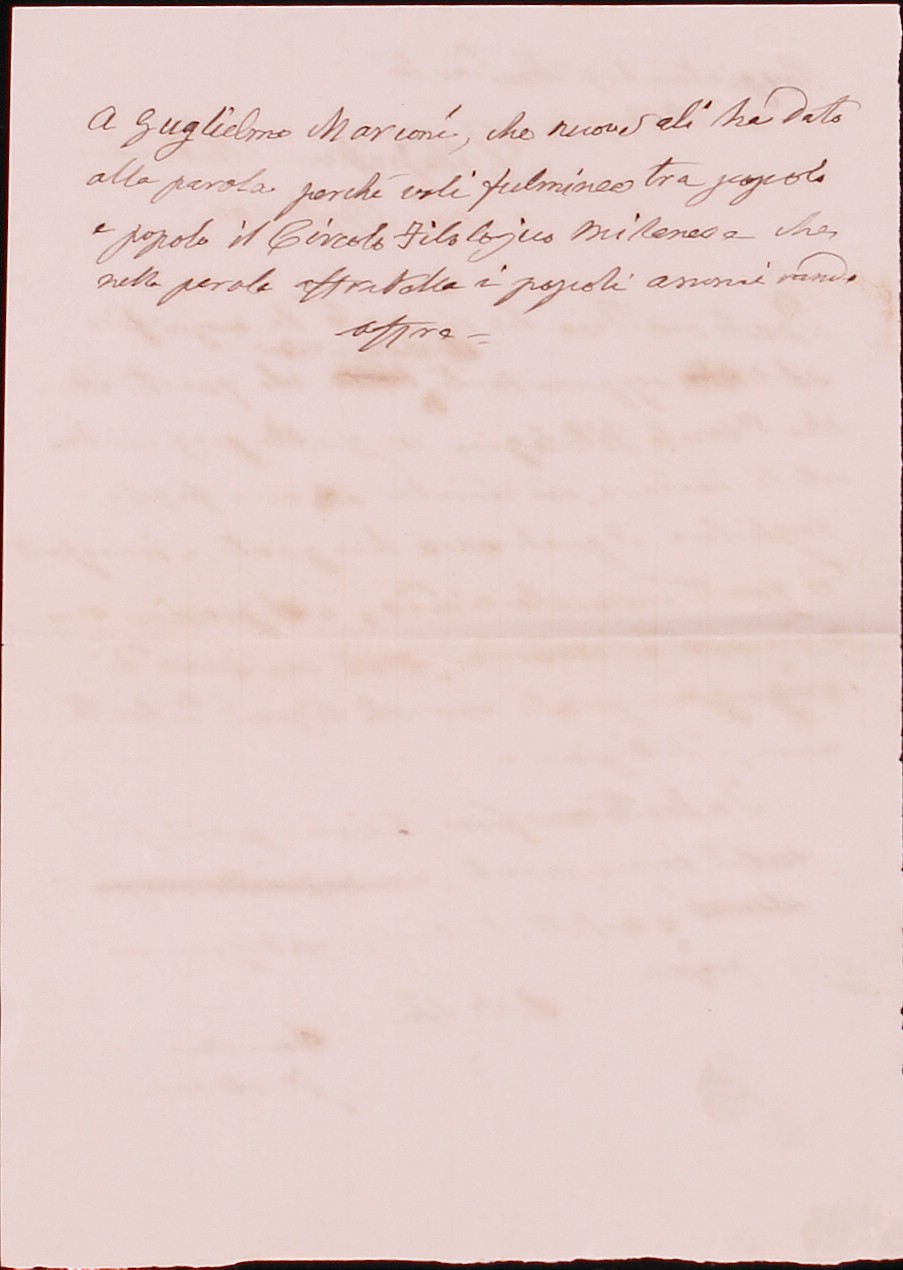 A Guglielmo Marconi, che nuove ali ha dato
alla parola perchè voli fulminea tra popolo
e popolo il Circolo Filologico Milanese che
nella parola affratella i popoli
offre =